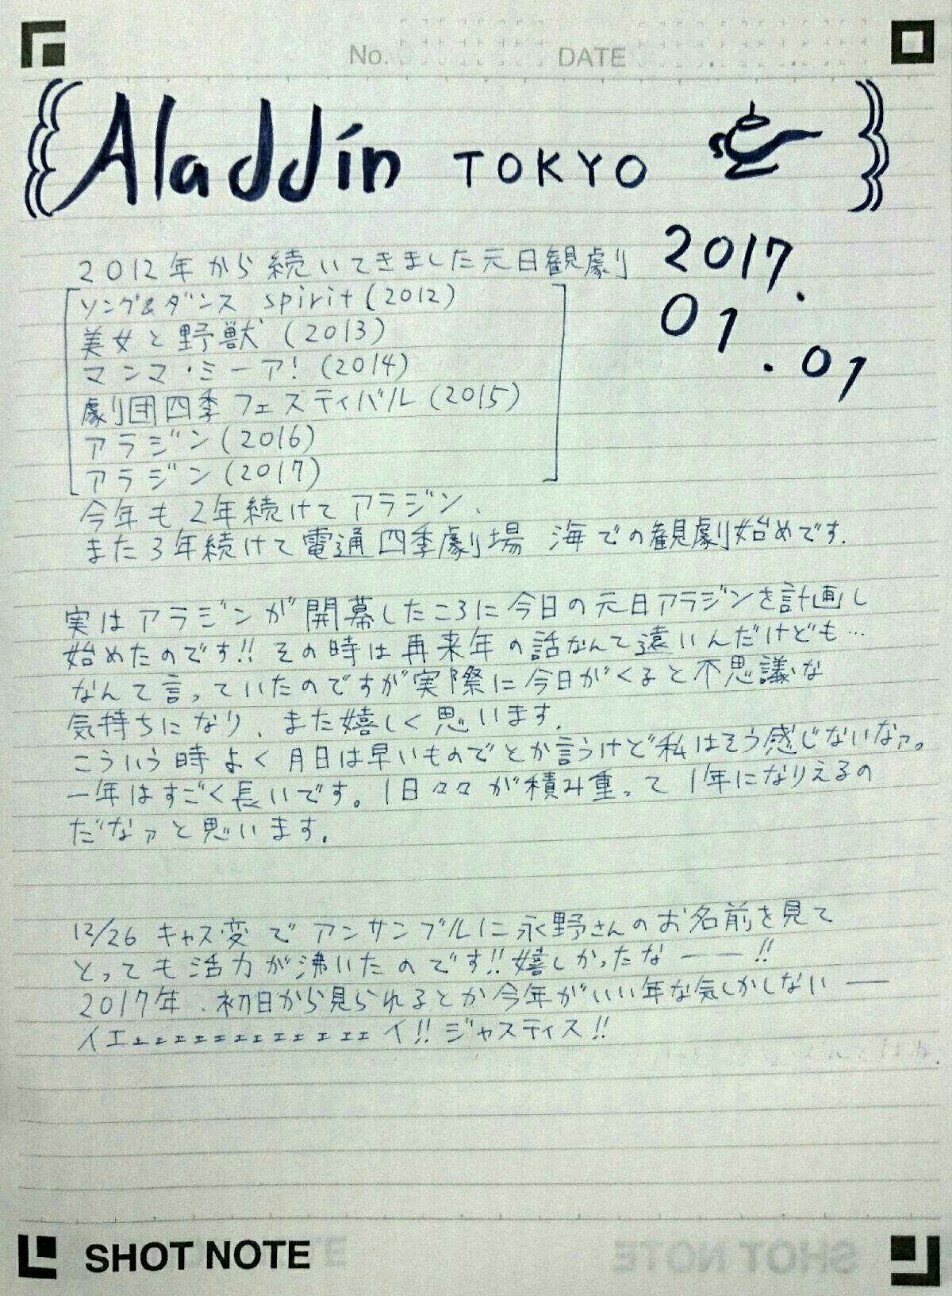 No. DATE
Aladdin TOKYO
2017.
01
.01
2012年から続いてきました元日観劇
ソング&ダンス spirit (2012)
美女と野獣 (2013)
マンマ・ミーア! (2014)
劇団四季フェスティバル (2015)
アラジン (2016)
アラジン (2017)
今年も2年続けてアラジン、
また3年続けて電通四季劇場 海での観劇始めです.
実はアラジンが開幕したころに今日の元日アラジンを計画し
始めたのです!! その時は再来年の話なんて遠いんだけども…
なんて言っていたのですが実際に今日がくると不思議な
気持ちになり、また嬉しく思います.
こういう時よく月日は早いものでとか言うけど私はそう感じないなァ。
一年はすごく長いです。1日々々が積み重って1年になりえるの
だなァと思います.
12/26 キャス変でアンサンブルに永野さんのお名前を見て
とっても活力が沸いたのです!! 嬉しかったなーー!!
2017年、初日から見られるとか今年がいい年な気しかしないー
イエェェェェェェェェェェェェイ!! ジャスティス!!
SHOT NOTE